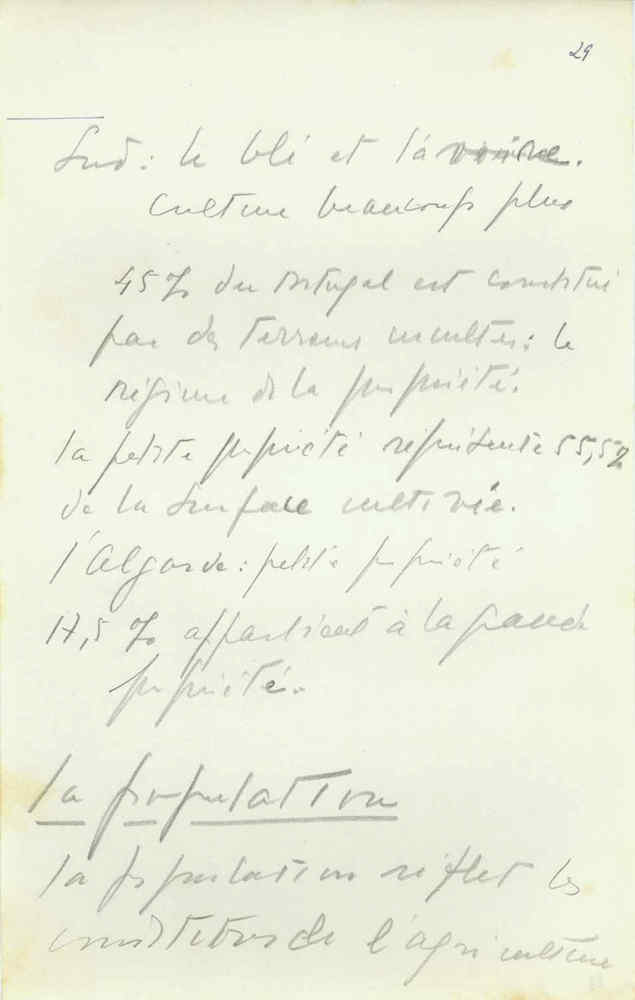 29
Sud : le blé et l'avoine.
culture beaucoup plus
45 % du Portugal est constitué
par des terrains incultes : le
régime de la propriété.
la petite propriété représente 55,5 %
de la surface cultivée.
l'Algarve : petite propriété
17,5 % appartient à la grande
propriété.
la population
la population reflet les
conditions de l'agriculture